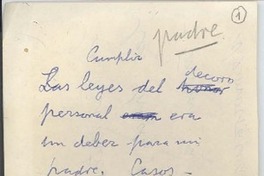 1
padre
Cumplir
decoro
Las leyes del honor
personal eran era
un deber para mi
padre. Casos -